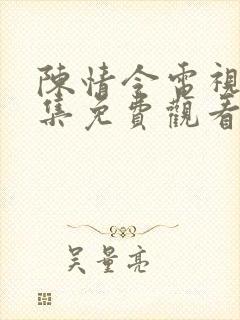 陳情令電視
集免費觀看
吴量亮